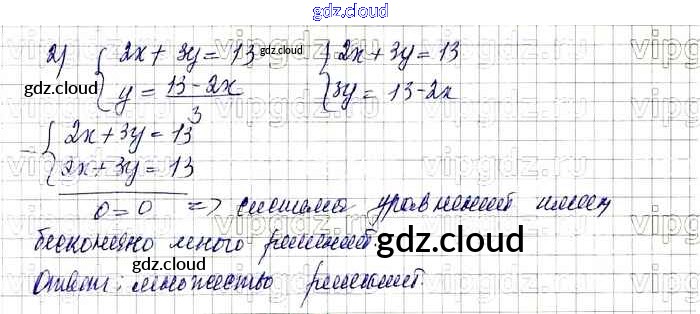 gdz.cloud
2) { 2x + 3y = 13 gdz.cloud } 2x + 3y = 13
gdz.cloud { y = 13 - 2x / 3 { 3y = 13 - 2x
- { 2x + 3y = 13
{ 2x + 3y = 13
gdz.cloud
0 = 0 => система уравнений имеет
бесконечно много решений. gdz.cloud
gdz.cloud
Ответ: множество решений.
vipgdz.ru